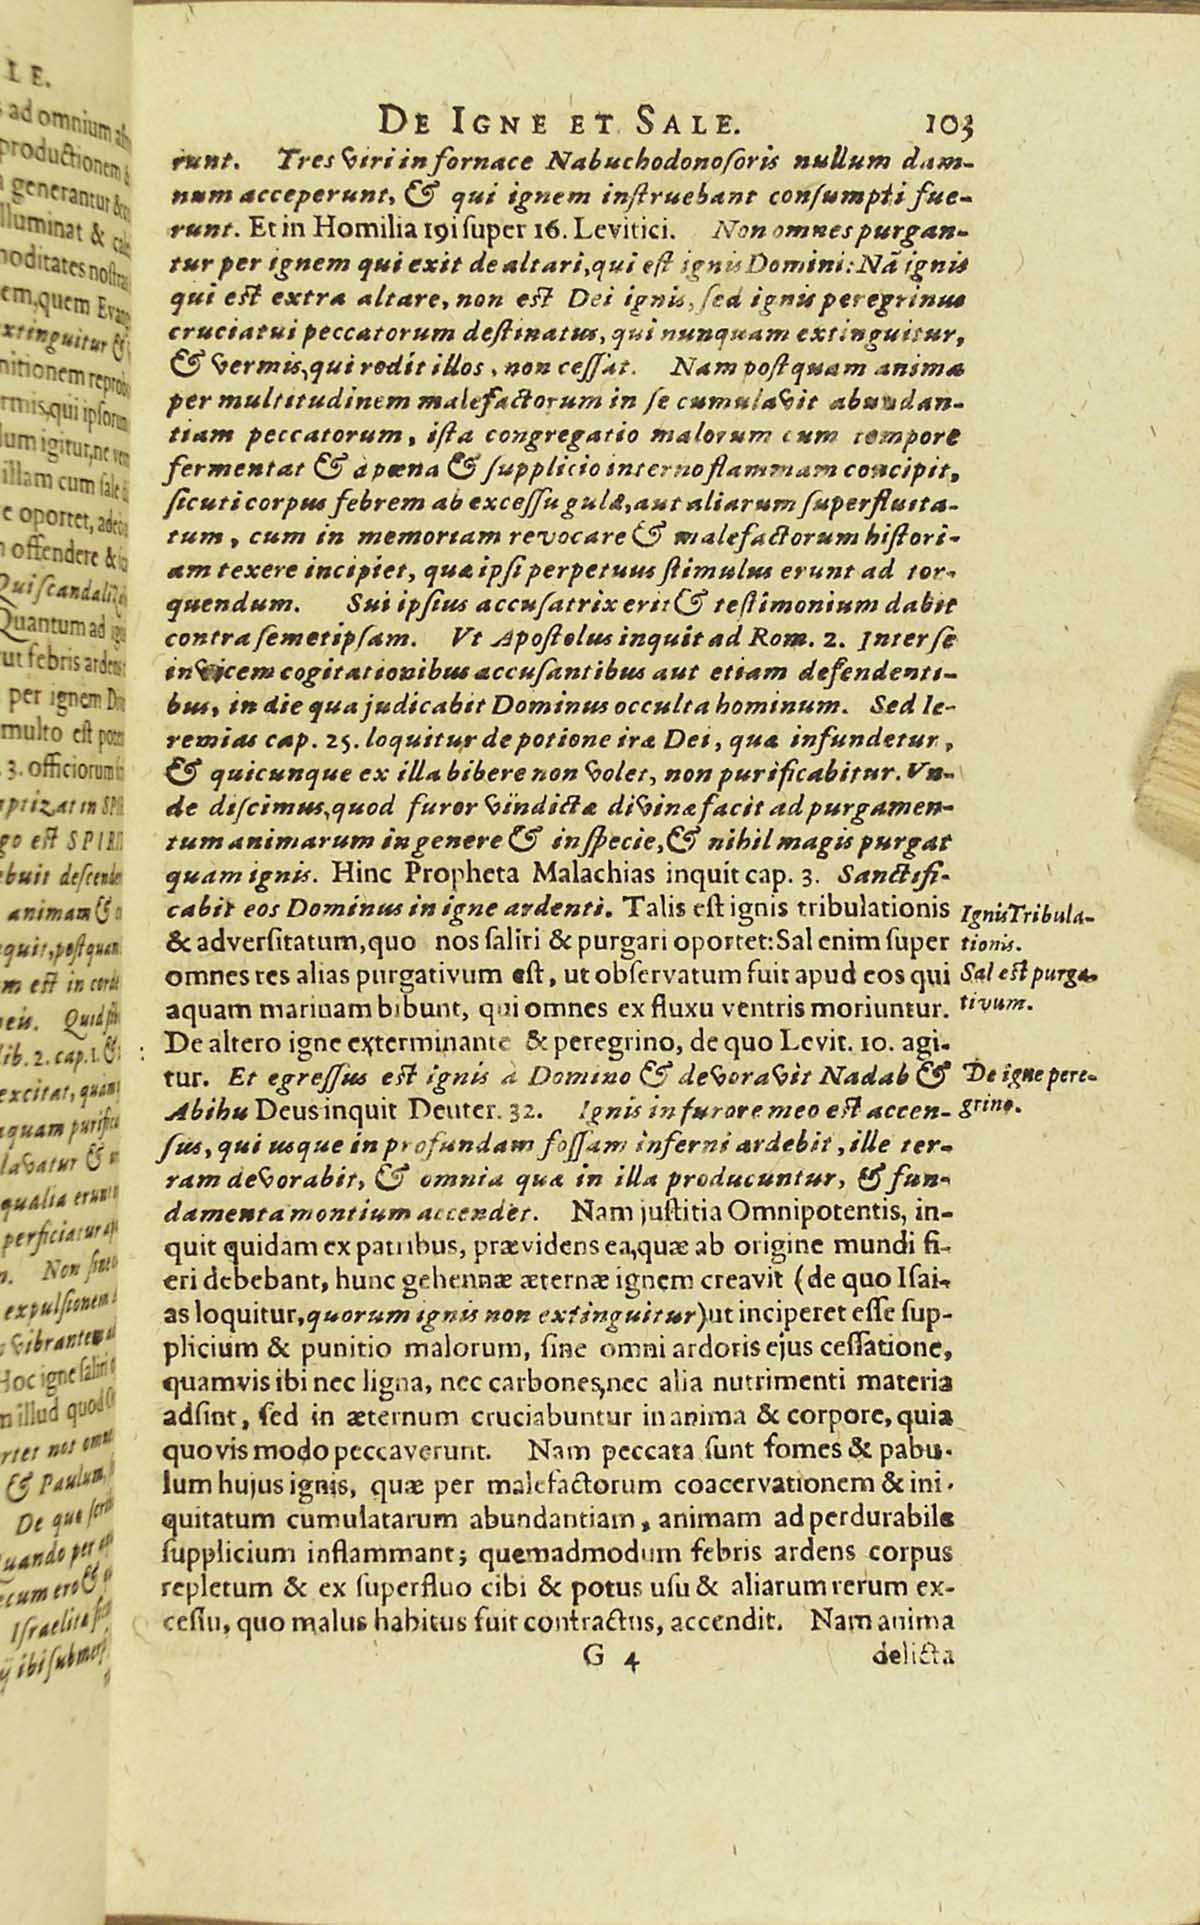 DE IGNE ET SALE. 103
runt. Tres viri in fornace Nabuchodonosoris nullum dam-
num acceperunt, & qui ignem instruebant consumpti fue-
runt. Et in Homilia 19i super 16. Levitici. Non omnes purgan-
tur per ignem qui exit de altari, qui est ignis Domini: Nã ignis
qui est extra altare, non est Dei ignis, sed ignis peregrinus
cruciatui peccatorum destinatus, qui nunquam extinguitur,
& vermis, qui rodit illos, non cessat. Nam postquam anima
per multitudinem malefactorum in se cumulavit abundan-
tiam peccatorum, ista congregatio malorum cum tempore
fermentat & à pœna & supplicio interno flammam concipit,
sicuti corpus febrem ab excessu gulæ, aut aliarum superfluita-
tum, cum in memoriam revocare & malefactorum histori-
am texere incipiet, quæ ipsi perpetuus stimulus erunt ad tor-
quendum. Sui ipsius accusatrix erit & testimonium dabit
contra semetipsam. Vt Apostolus inquit ad Rom. 2. Inter se
invicem cogitationibus accusantibus aut etiam defendenti-
bus, in die qua judicabit Dominus occulta hominum. Sed Ie-
remias cap. 25. loquitur de potione iræ Dei, quæ infundetur,
& quicunque ex illa bibere non volet, non purificabitur. Vn-
de discimus, quod furor vindictæ divinæ facit ad purgamen-
tum animarum in genere & in specie, & nihil magis purgat
quam ignis. Hinc Propheta Malachias inquit cap. 3. Sanctifi-
cabit eos Dominus in igne ardenti. Talis est ignis tribulationis
& adversitatum, quo nos saliri & purgari oportet: Sal enim super
omnes res alias purgativum est, ut observatum fuit apud eos qui
aquam marinam bibunt, qui omnes ex fluxu ventris moriuntur.
Ignis Tribula-
tionis.
Sal est purga-
tivum.
De altero igne exterminante & peregrino, de quo Levit. 10. agi-
tur. Et egressus est ignis à Domino & devoravit Nadab &
Abihu Deus inquit Deuter. 32. Ignis in furore meo est accen-
De igne pere-
grino.
sus, qui usque in profundam fossam inferni ardebit, ille ter-
ram devorabit, & omnia quæ in illa producuntur, & fun-
damenta montium accendet. Nam justitia Omnipotentis, in-
quit quidam ex patribus, prævidens ea, quæ ab origine mundi fi-
eri debebant, hunc gehennæ æternæ ignem creavit (de quo Isai-
as loquitur, quorum ignis non extinguitur) ut inciperet esse sup-
plicium & punitio malorum, sine omni ardoris ejus cessatione,
quamvis ibi nec ligna, nec carbones, nec alia nutrimenti materia
adsint, sed in æternum cruciabuntur in anima & corpore, quia
quovis modo peccaverunt. Nam peccata sunt fomes & pabu-
lum hujus ignis, quæ per malefactorum coacervationem & ini-
quitatum cumulatarum abundantiam, animam ad perdurabile
supplicium inflammant; quemadmodum febris ardens corpus
repletum & ex superfluo cibi & potus usu & aliarum rerum ex-
cessu, quo malus habitus fuit contractus, accendit. Nam anima
G 4 delicta